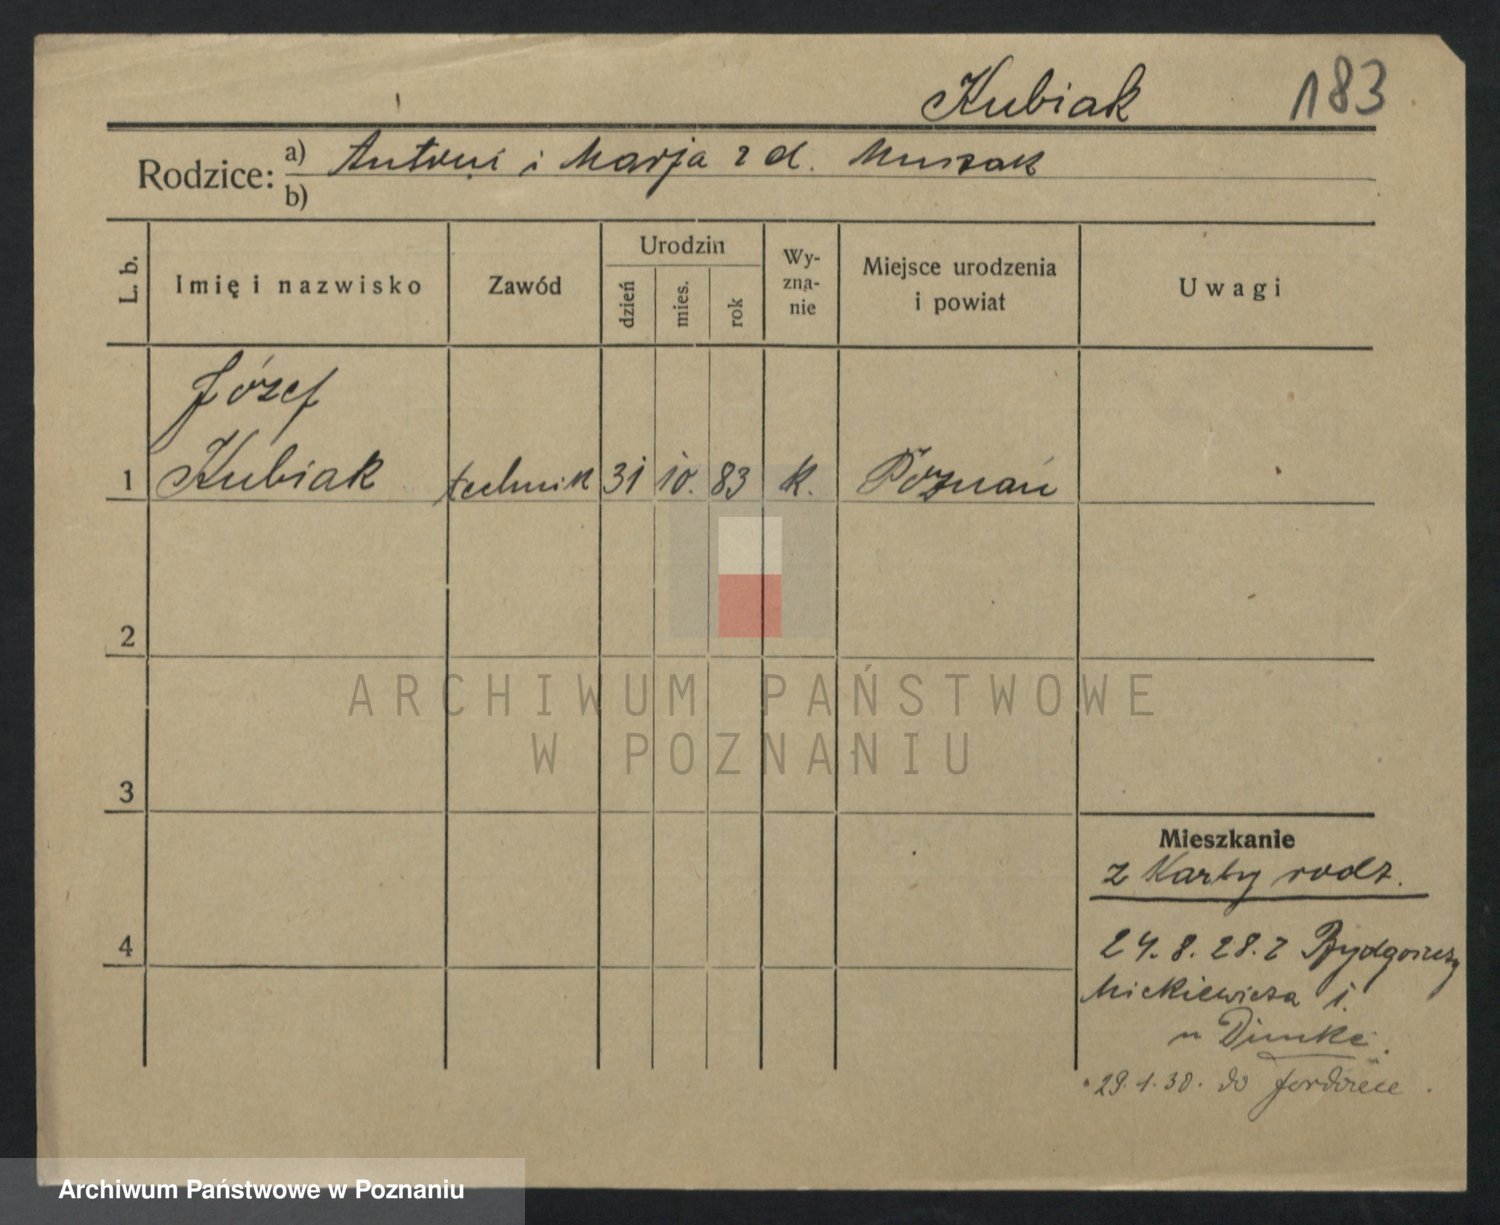 Kubiak 183
Rodzice: a) Antoni i Marja z d. Muszak
b)
L. b. Imię i nazwisko Zawód Urodzin dzień mies. rok Wy-zna-nie Miejsce urodzenia i powiat Uwagi
Józef
1 Kubiak technik 31 10. 83 k. Poznań
2
ARCHIWUM PAŃSTWOWE
W POZNANIU
3
Mieszkanie
z Karty rodz.
4
24. 8. 28. z Bydgoszczy
Mickiewicza 1.
u
29. 1. 30. do
Archiwum Państwowe w Poznaniu